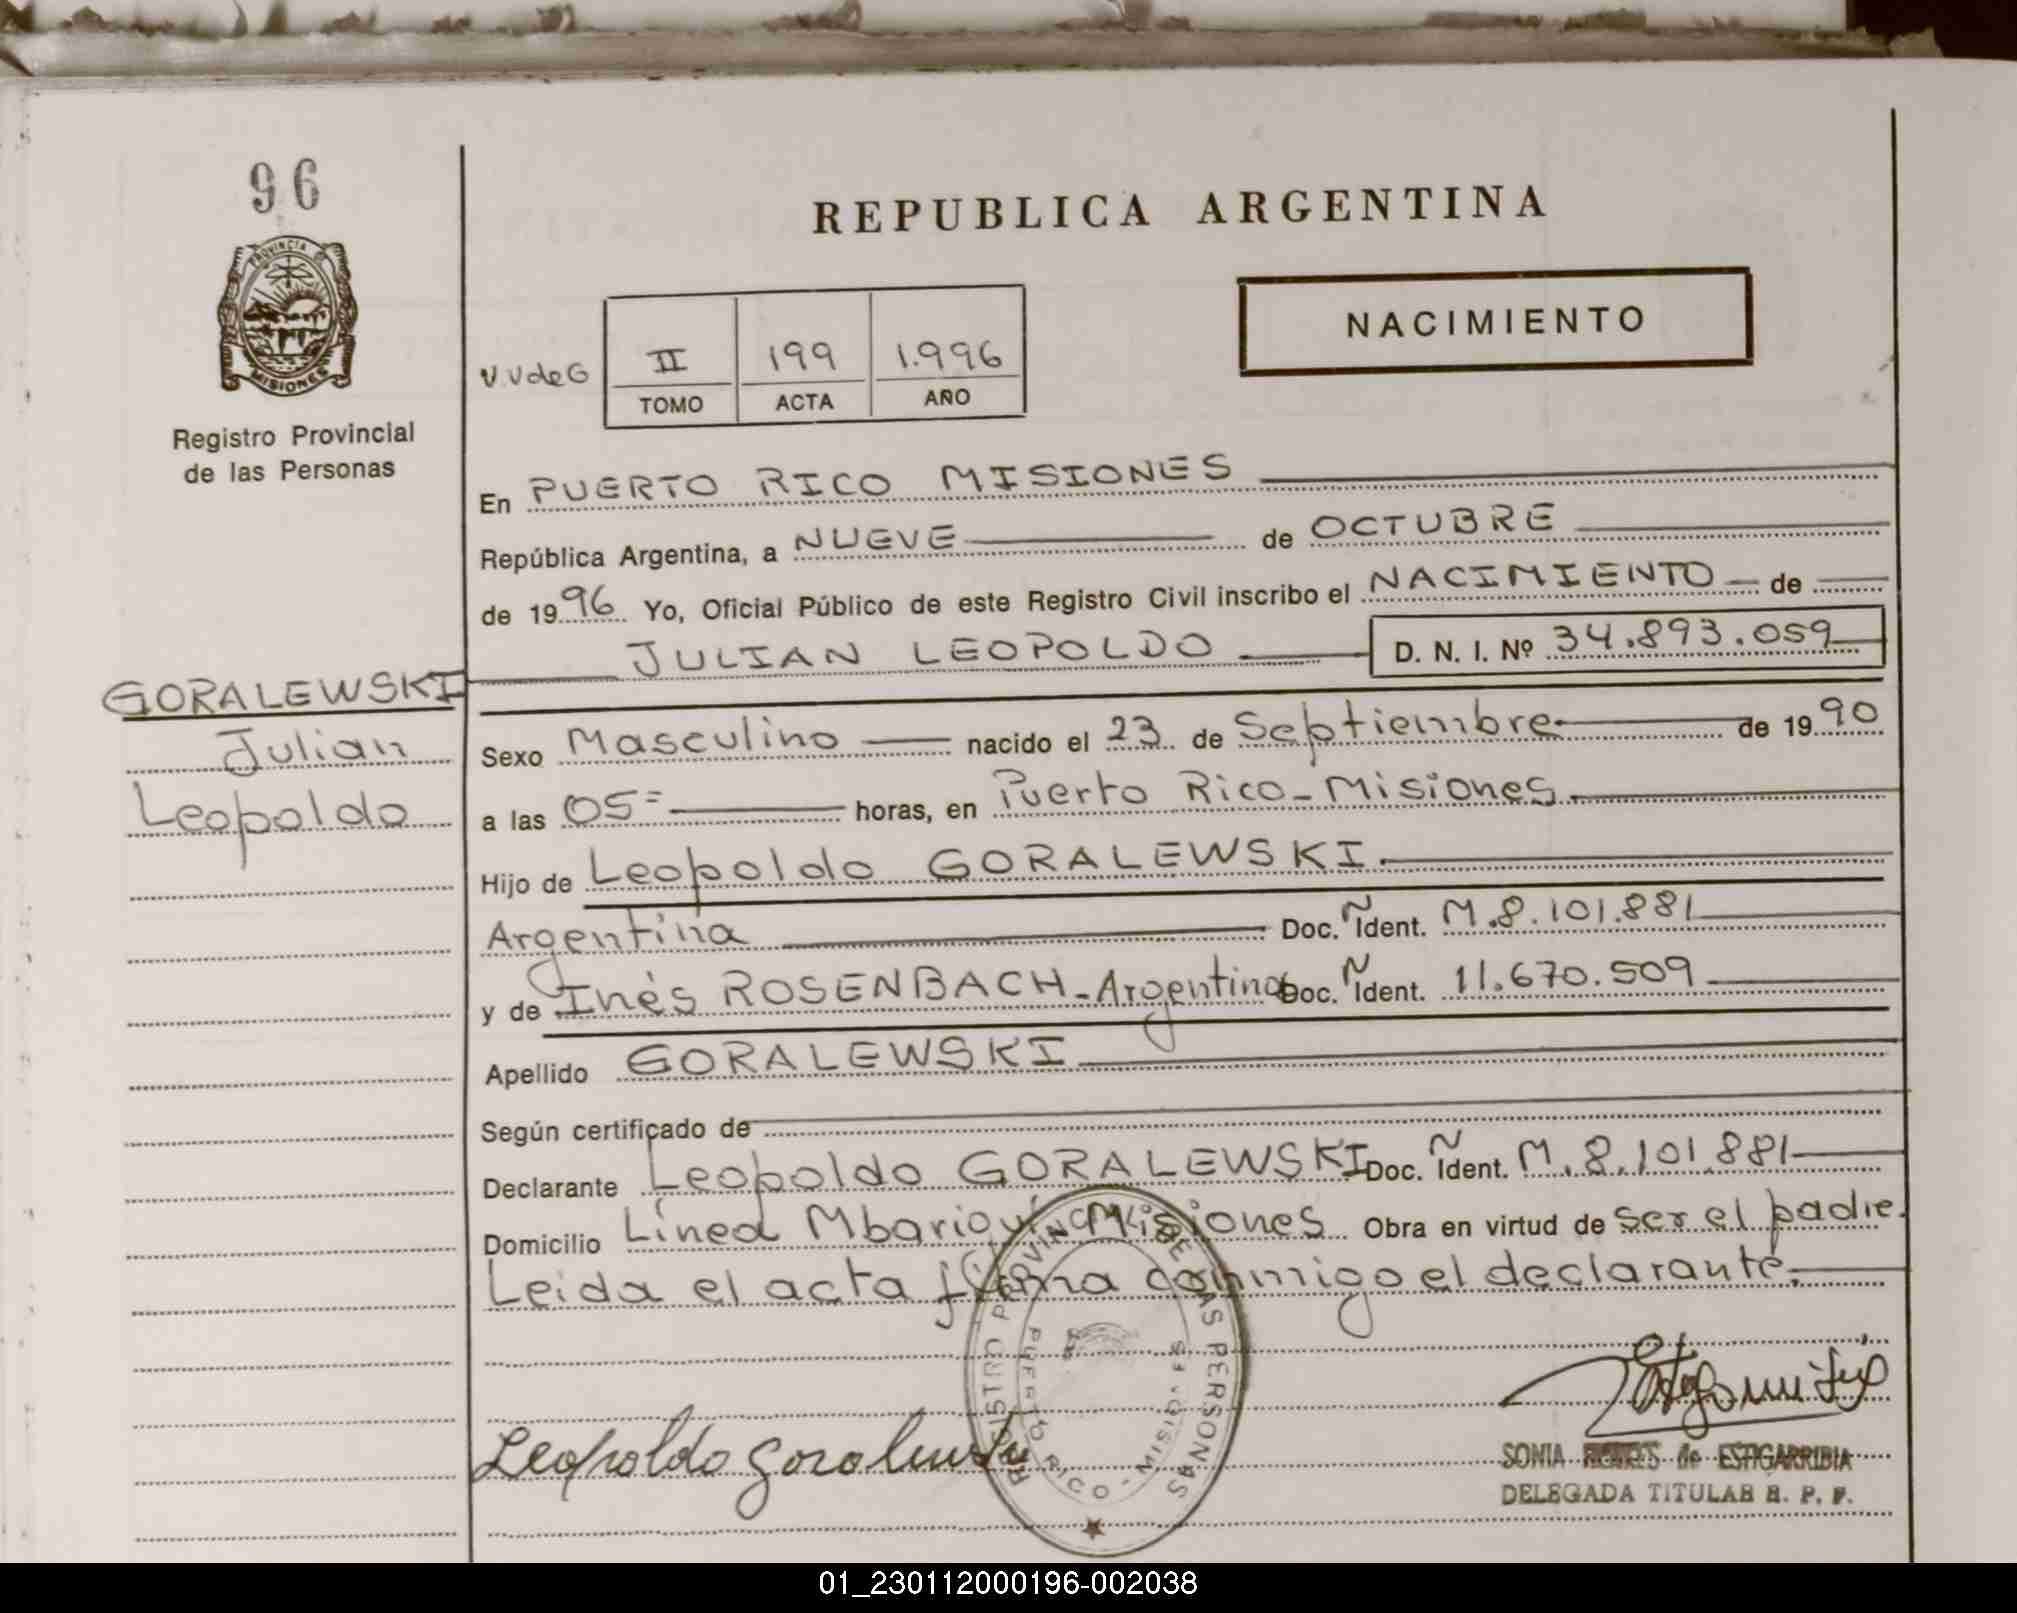 96
REPUBLICA ARGENTINA
PROVINCIA
MISIONES
NACIMIENTO
V.V de G
II 199 1.996
TOMO ACTA AÑO
Registro Provincial
de las Personas
En PUERTO RICO MISIONES
República Argentina, a NUEVE de OCTUBRE
de 1996 Yo, Oficial Público de este Registro Civil inscribo el NACIMIENTO de
JULIAN LEOPOLDO D. N. I. Nº 34.893.059
GORALEWSKI
Julian
Leopoldo
Sexo Masculino nacido el 23 de Septiembre de 1990
a las 05= horas, en Puerto Rico - Misiones.
Hijo de Leopoldo GORALEWSKI.
Argentina Doc. Ident. M.8.101.881
y de Inés ROSENBACH - Argentina Doc. Ident. 11.670.509
Apellido GORALEWSKI
Según certificado de
Declarante Leopoldo GORALEWSKI Doc. Ident. M.8.101.881
Domicilio Línea Mbariguí - Misiones Obra en virtud de ser el padre.
Leida el acta firma conmigo el declarante.
REGISTRO PROVINCIAL DE LAS PERSONAS
PUERTO RICO - MISIONES
Leopoldo Goralewski
SONIA de ESTIGARRIBIA
DELEGADA TITULAR R. P. P.
01_230112000196-002038